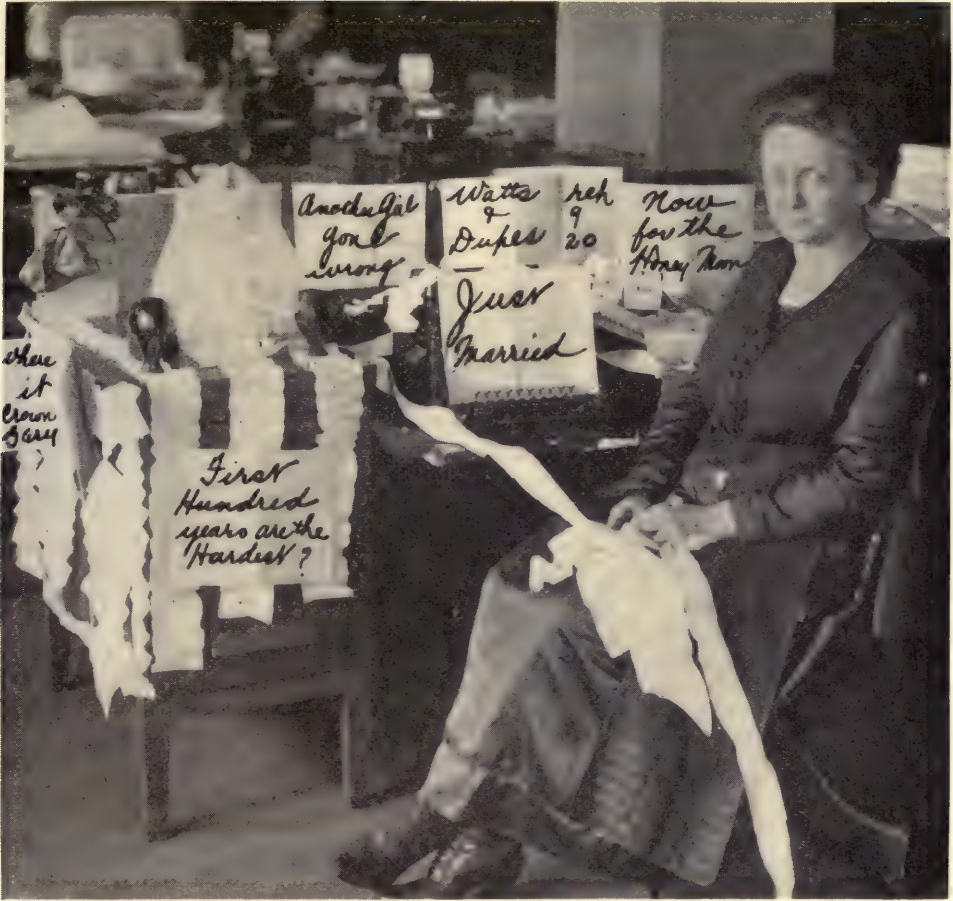 Another Gal
gone
wrong
Watts
&
Dupes
9
20
Now
for the
Honey Moon
Just
Married
where
it
Crown
Gary
?
First
Hundred
years are the
Hardest?